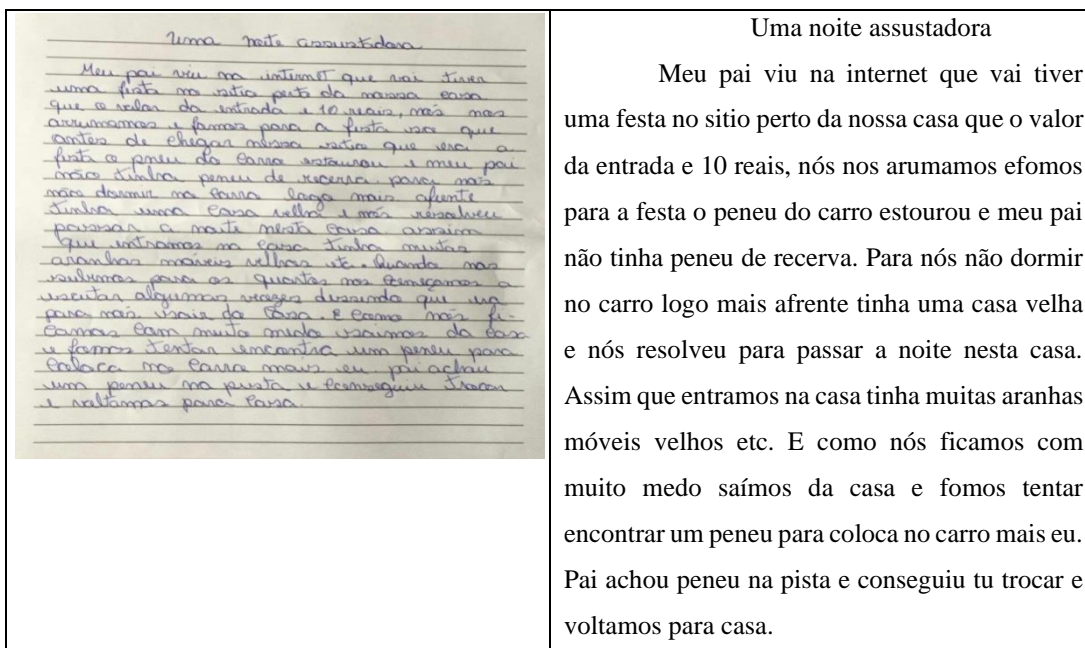 Uma noite assustadora
Meu pai viu na internet que vai tiver
uma festa no sitio perto da nossa casa
que o valor da entrada e 10 reais, nós nos
arrumamos e fomos para a festa so que
antes de chegar nessa sitio que era a
festa o pneu do carro estourou e meu pai
não tinha peneu de recerva para nós
não dormir no carro logo mais afrente
tinha uma casa velha e nós resolveu
passar a noite nesta casa assim
que entramos na casa tinha muitas
aranhas móveis velhos etc. Quando nos
subimos para os quartos nos começamos a
escutar algumas vozes dissendo que
para nós saia da casa. E como nós fi-
camos com muito medo saimos da casa
e fomos tentar encontra um peneu para
coloca no carro mais eu pai achou
um peneu na pista e conseguiu trocar
e voltamos para casa.
Uma noite assustadora
Meu pai viu na internet que vai tiver
uma festa no sitio perto da nossa casa que o valor
da entrada e 10 reais, nós nos arumamos efomos
para a festa o peneu do carro estourou e meu pai
não tinha peneu de recerva. Para nós não dormir
no carro logo mais afrente tinha uma casa velha
e nós resolveu para passar a noite nesta casa.
Assim que entramos na casa tinha muitas aranhas
móveis velhos etc. E como nós ficamos com
muito medo saímos da casa e fomos tentar
encontrar um peneu para coloca no carro mais eu.
Pai achou peneu na pista e conseguiu tu trocar e
voltamos para casa.